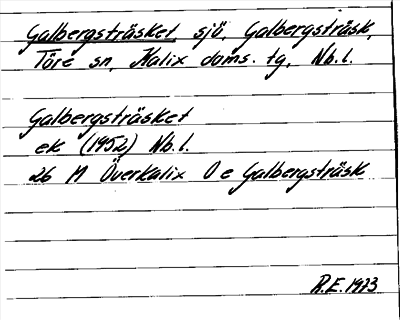 Galbergsträsket, sjö, Galbergsträsk,
Töre sn, Kalix doms. tg, Nb.l.
Galbergsträsket
ek (1952) Nb.l.
26 M Överkalix O e Galbergsträsk
R.E. 1973